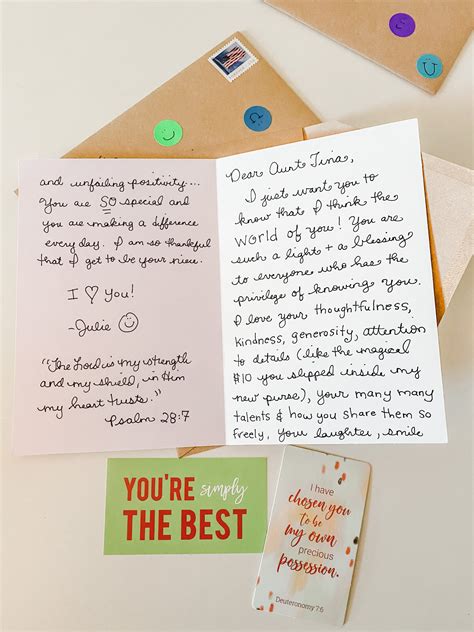 Dear Aunt Tina,
I just want you to
know that I think the
world of you! You are
such a light + a blessing
to everyone who has the
privilege of knowing you.
I love your thoughtfulness,
kindness, generosity, attention
to details (like the magical
$10 you slipped inside my
new purse), your many many
talents & how you share them so
freely, your laughter, smile
and unfailing positivity...
You are SO special and
you are making a difference
every day. I am so thankful
that I get to be your niece.
I ♡ you!
-Julie ☺
"The Lord is my strength
and my shield, in Him
my heart trusts."
Psalm 28:7
YOU'RE simply
THE BEST
I have
chosen you
to be
my own
precious
possession.
Deuteronomy 7:6